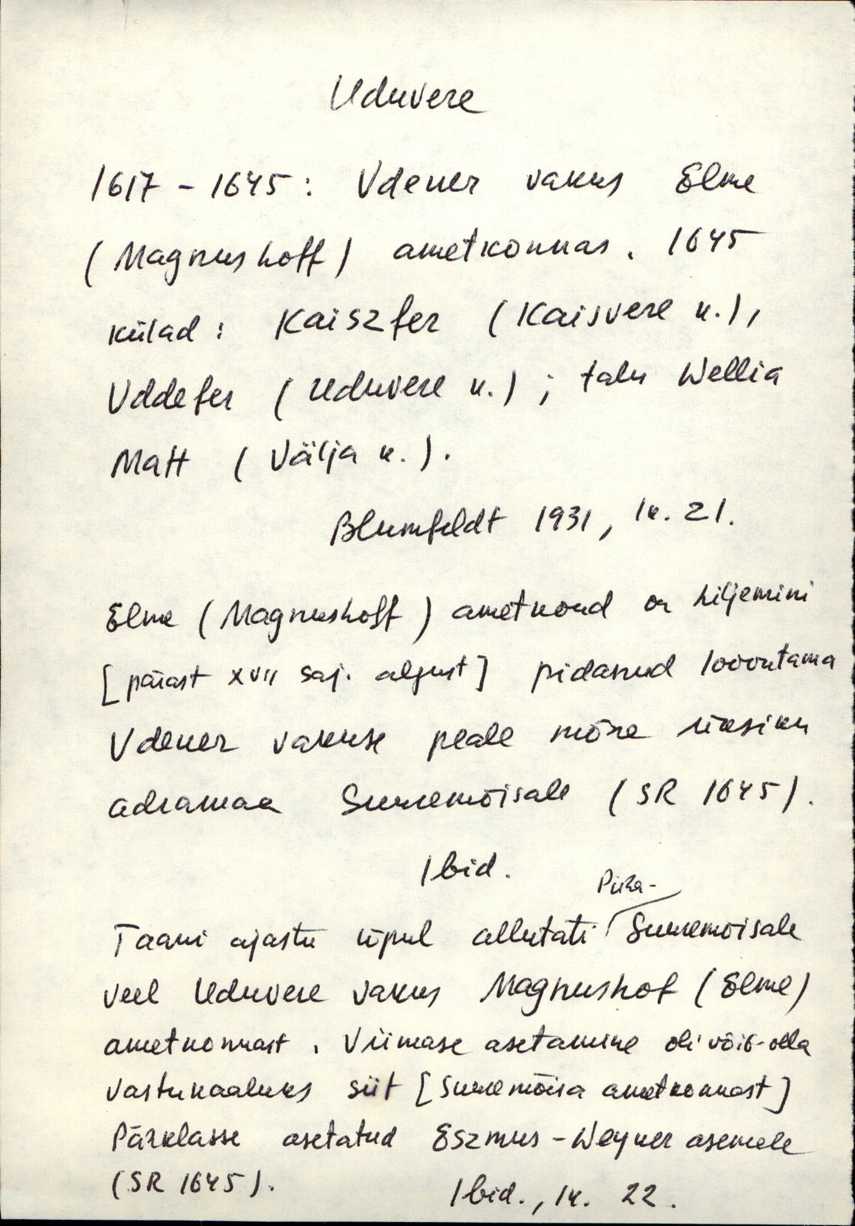 Uduvere
1617 - 1645: Udener vakus Elme
(Magnushoff) ametkonnas. 1645
külad: Kaiszfer (Kaisvere k.),
Uddefer (Uduvere k.); talu Wellia
Matt (Välja k.).
Blumfeldt 1931, lk. 21.
Elme (Magnushoff) ametkond on hiljemini
[pärast XVII saj. algust] pidanud loovutama
Udener vakuse peale mõne üksiku
adramaa Suuremõisale (SR 1645).
Ibid.
Püha-
Taani ajastu lõpul allutati Suuremõisale
veel Uduvere vakus Magnushof (Elme)
ametkonnast. Viimase asetamine oli võib-olla
vastukaaluks siit [Suuremõisa ametkonnast]
Pärklasse asetatud Eszmus-Weyner asemele
(SR 1645).
Ibid., lk. 22.